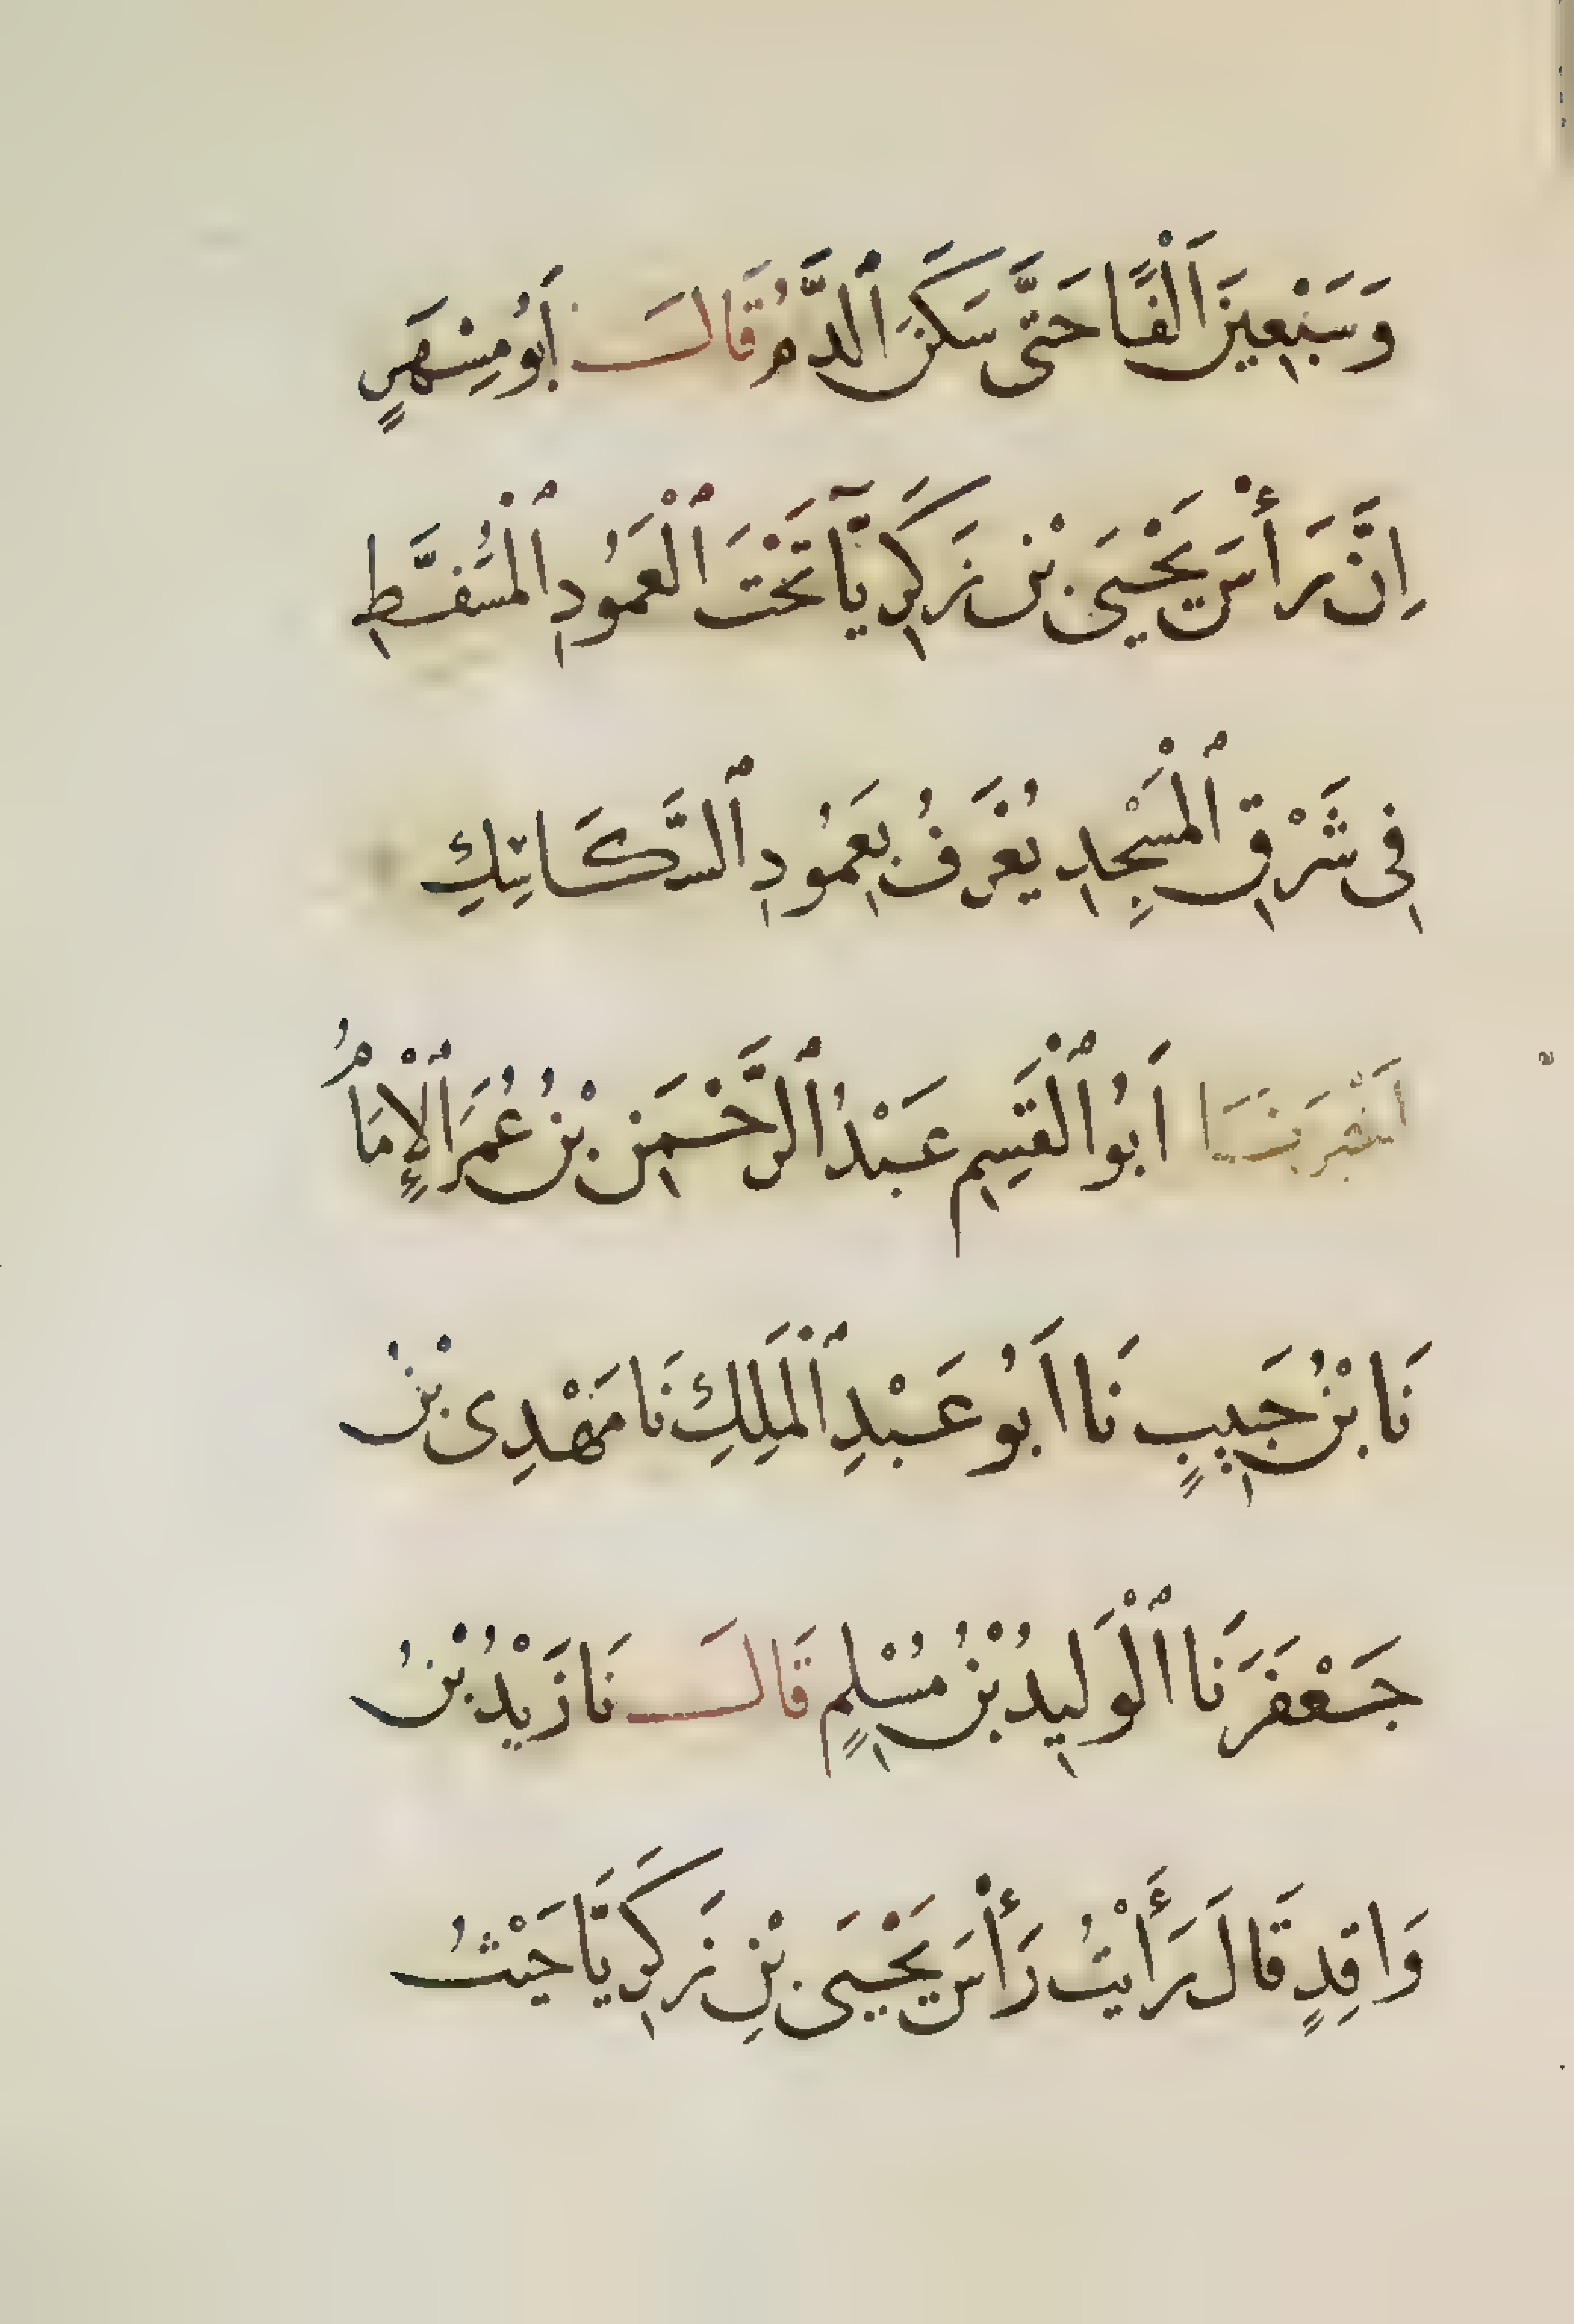 وَسَبْعِينَ أَلْفًا حَتَّى سَكَنَ ٱلدَّمُ قَالَ أَبُو مِسْهَرٍ
اِنَّ رَأْسَ يَحْيَى بْن زَكَرِيَّآ تَحْتَ ٱلْعَمُودِ ٱلْمُسَفَّطِ
فِى شَرْقِ ٱلْمَسْجِدِ يُعْرَفُ بِعَمُودِ ٱلسَّكَاسِكِ
اَخْبَرَنَا اَبُو ٱلْقَسِمِ عَبْدُ ٱلرَّحْمَنِ بْنُ عُمَرَ ٱلْإِمَامُ
نَا بْنُ حَبِيبٍ نَا اَبُو عَبْدِ ٱلْمَلِكِ نَا مَهْدِى بْنُ
جَعْفَرَ نَا ٱلْوَلِيدُ بْنُ مُسْلِمٍ قَالَ نَا زَيْدُ بْنُ
وَاقِدٍ قَالَ رَأَيْتُ رَأْسَ يَحْيَى بْنِ زَكَرِيَّا حَيْثُ